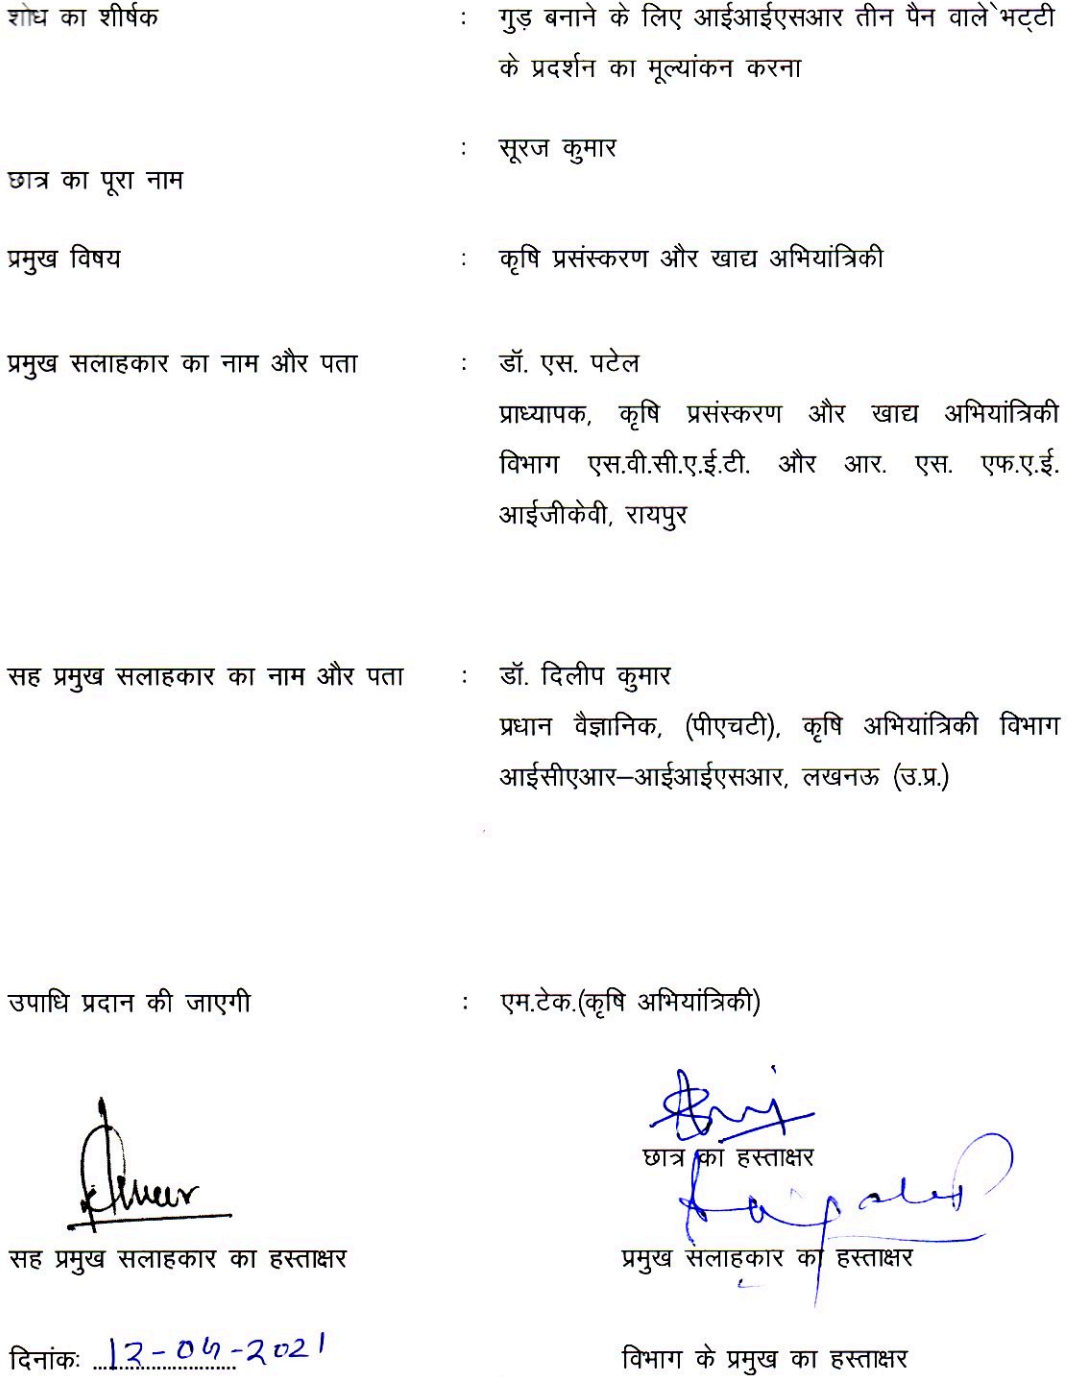 शोध का शीर्षक : गुड़ बनाने के लिए आईआईएसआर तीन पैन वाले भट्टी
के प्रदर्शन का मूल्यांकन करना
: सूरज कुमार
छात्र का पूरा नाम
प्रमुख विषय : कृषि प्रसंस्करण और खाद्य अभियांत्रिकी
प्रमुख सलाहकार का नाम और पता : डॉ. एस. पटेल
प्राध्यापक, कृषि प्रसंस्करण और खाद्य अभियांत्रिकी
विभाग एस.वी.सी.ए.ई.टी. और आर. एस. एफ.ए.ई.
आईजीकेवी, रायपुर
सह प्रमुख सलाहकार का नाम और पता : डॉ. दिलीप कुमार
प्रधान वैज्ञानिक, (पीएचटी), कृषि अभियांत्रिकी विभाग
आईसीएआर–आईआईएसआर, लखनऊ (उ.प्र.)
उपाधि प्रदान की जाएगी : एम.टेक.(कृषि अभियांत्रिकी)
छात्र का हस्ताक्षर
सह प्रमुख सलाहकार का हस्ताक्षर प्रमुख सलाहकार का हस्ताक्षर
दिनांकः विभाग के प्रमुख का हस्ताक्षर